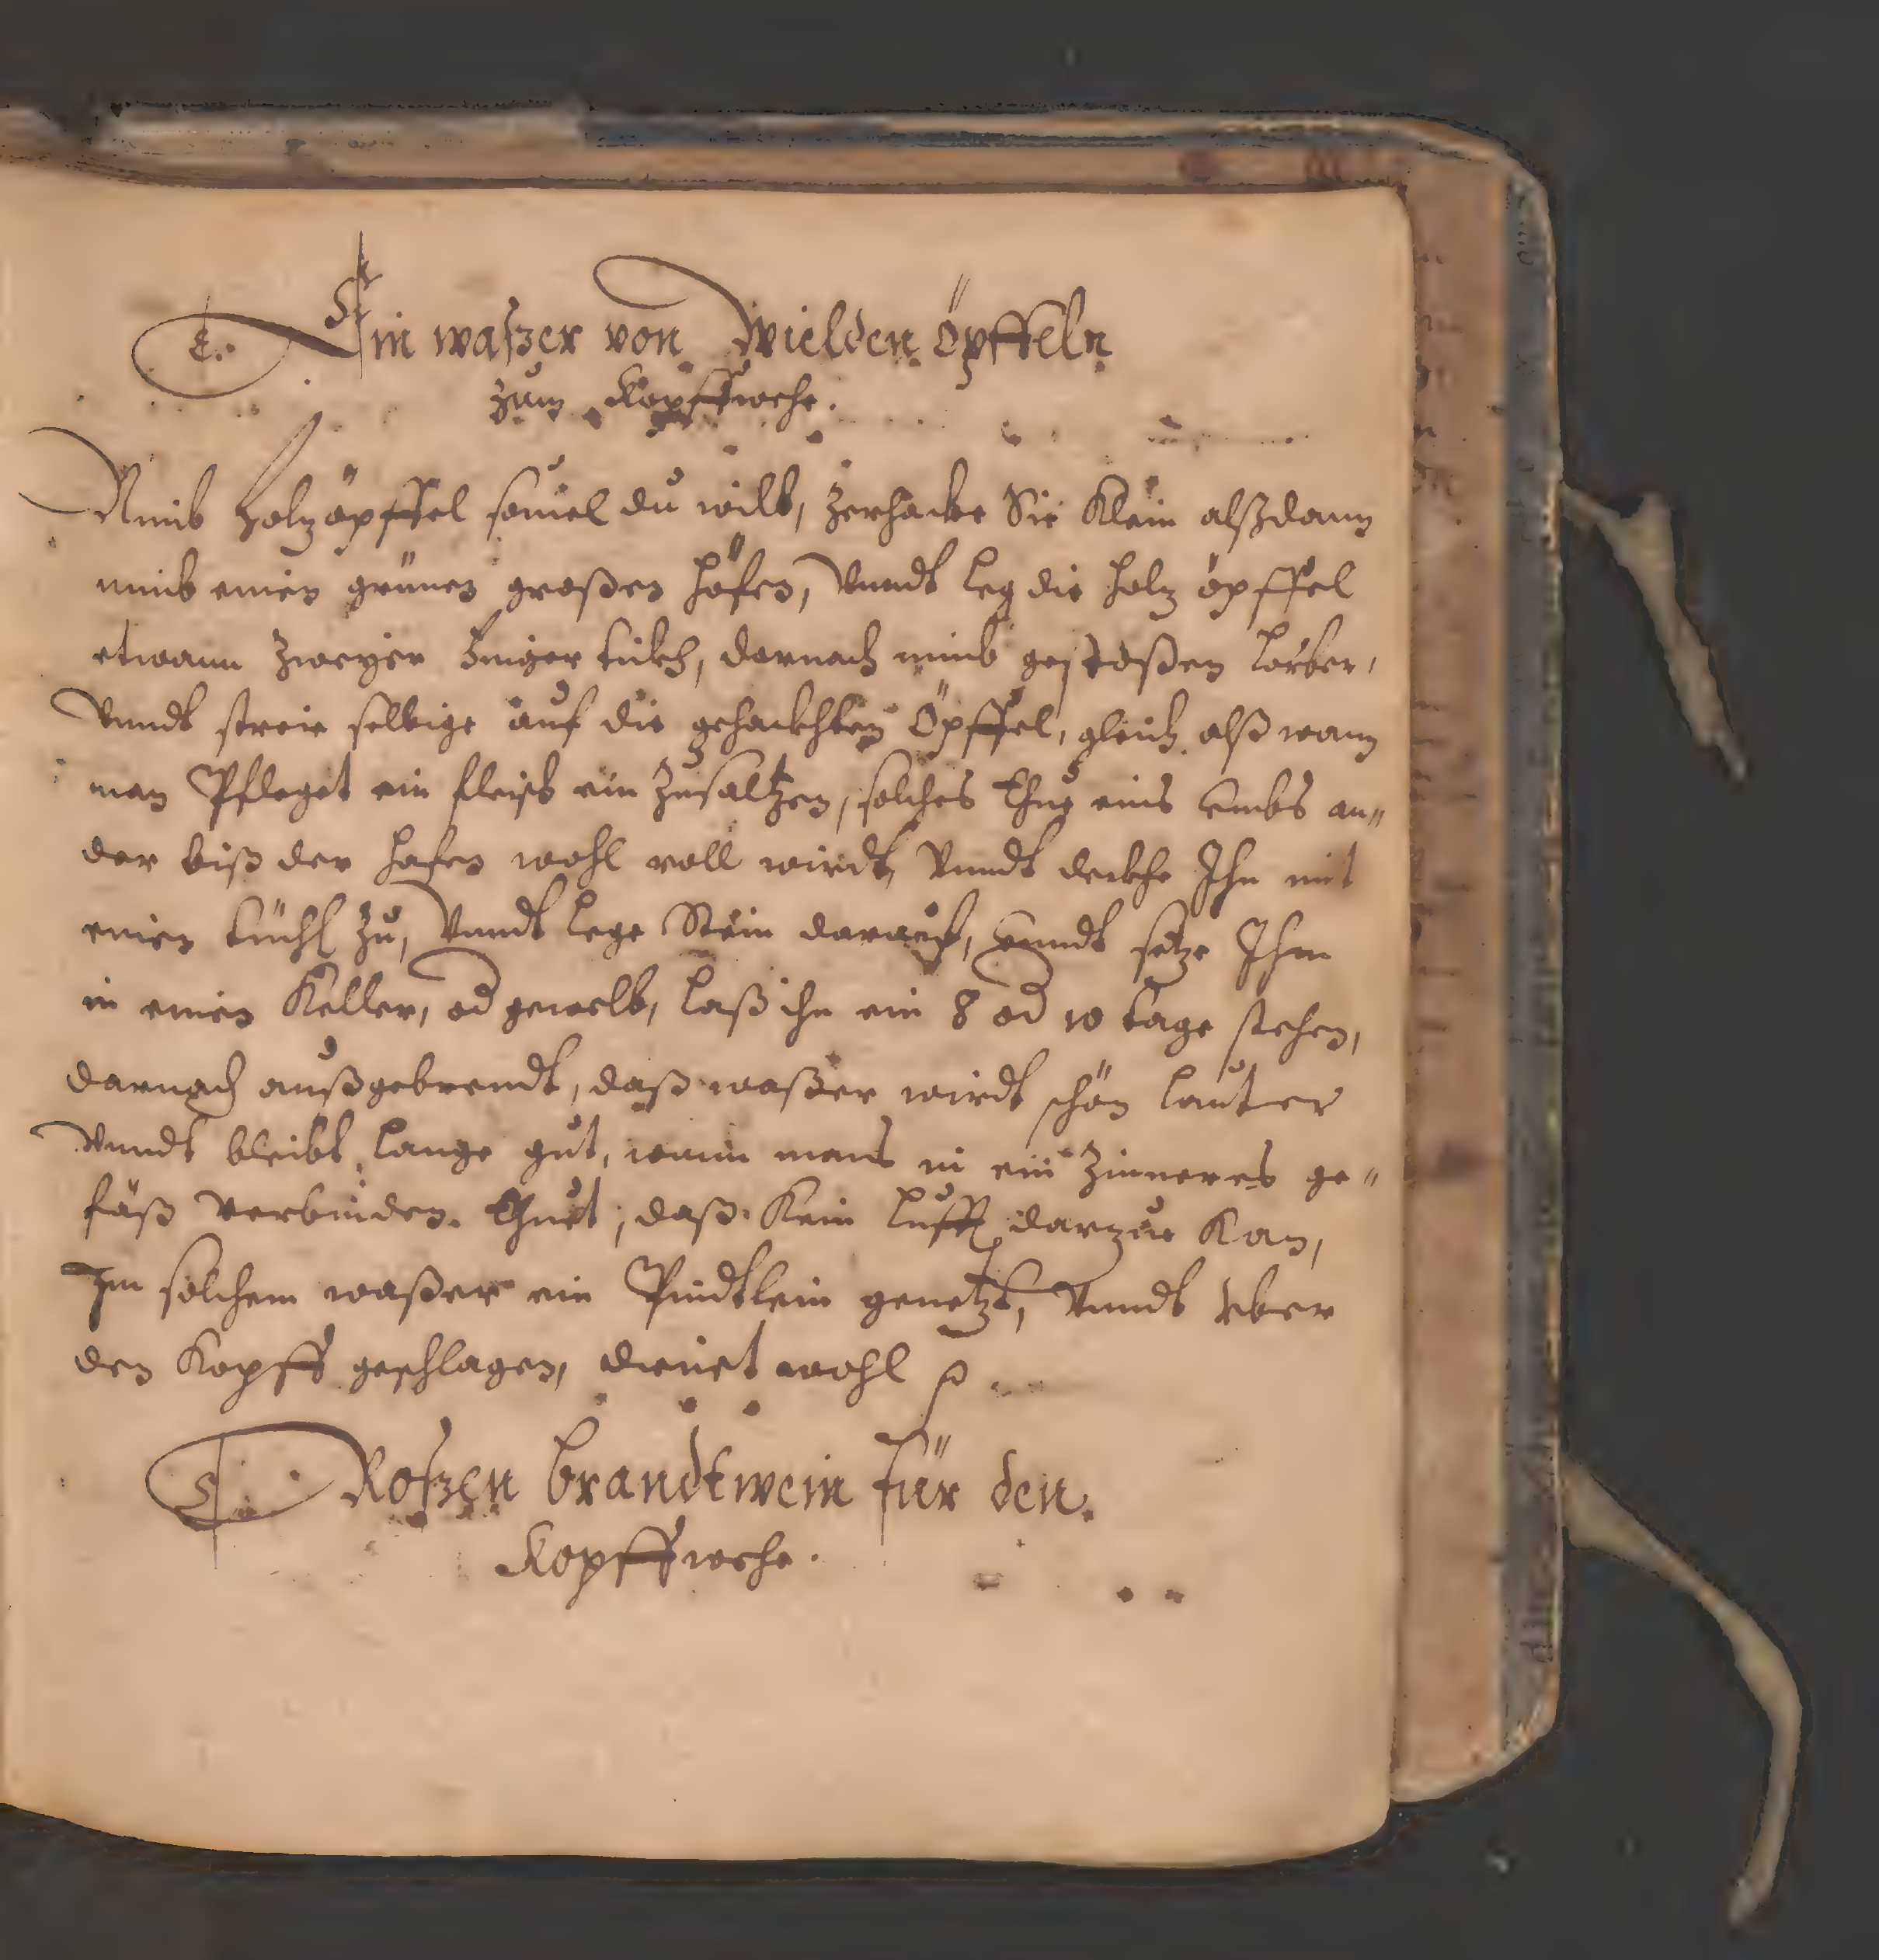 4. Ein waßer von Wielden Öpffeln
zum Kopffwehe.
Nimb holtzöpffel souiel du wilt, Zerhacke Sie Klein alßdann
nimb einen grünen großen Hafen, Vnndt leg die holtz öpffel
etwann Zweyer Finger tükh, darnach nimb gestoßen Lorber,
Vnndt streie selbige auf die gehackhten Öpffel, gleich alß wann
man Pfleget ein fleisch ein Zusaltzen, solches thue eins umbs an"
der biß der Hafen wohl voll wirdt, Vnndt deckhe Ihn mit
einen tüchl Zu, Vnndt lege Stein darauf, vnndt setze Ihn
in einen Keller, od gewelb, laß ihn ein 8 od 10 tage stehen,
darnach außgebrendt, daß waßer wirdt schön lauter
Vnndt bleibt lange gut, wann mans in ein Zinneres ge"
fäß verbinden thuet, daß Kein lufft darzue Kan,
Im solchem waßer ein Pindtlein genetzt, Vnndt vber
den Kopff geschlagen, dienet wohl
5. Roßzen brandtwein für den
Kopffwehe.